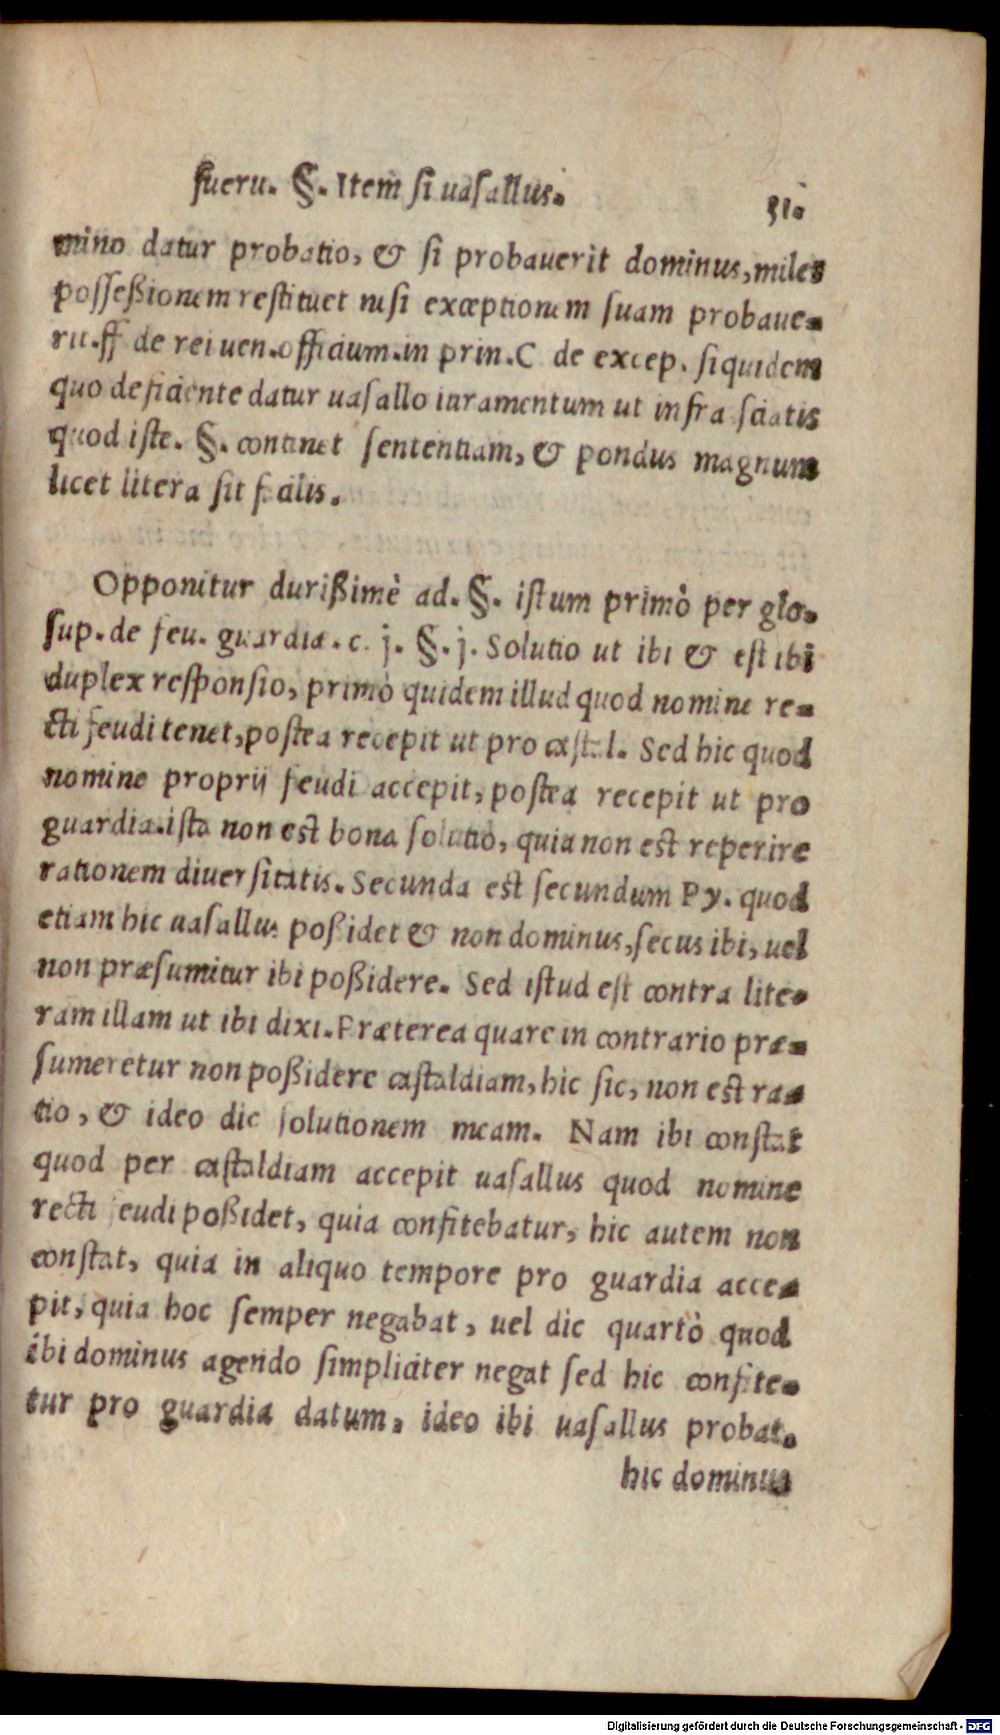 fueru. §. Item si uasallus.
51.
mino datur probatio, & si probauerit dominus, miles
possessionem restituet nisi exceptionem suam probaue-
rit. ff de rei uen. officium. in prin. C de excep. siquidem
quo deficiente datur uasallo iuramentum ut infra sciatis
quod iste. §. continet sententiam, & pondus magnum
licet litera sit facilis.
Opponitur durißimè ad. §. istum primò per glo.
sup. de feu. guardiæ. c. j. §. j. Solutio ut ibi & est ibi
duplex responsio, primò quidem illud quod nomine re-
cti feudi tenet, postea recepit ut pro castal. Sed hic quod
nomine proprij feudi accepit, postea recepit ut pro
guardia. ista non est bona solutio, quia non est reperire
rationem diuersitatis. Secunda est secundum Py. quod
etiam hic uasallus poßidet & non dominus, secus ibi, uel
non præsumitur ibi poßidere. Sed istud est contra lite-
ram illam ut ibi dixi. Præterea quare in contrario præ-
sumeretur non poßidere castaldiam, hic sic, non est ra-
tio, & ideo dic solutionem meam. Nam ibi constat
quod per castaldiam accepit uasallus quod nomine
recti feudi poßidet, quia confitebatur, hic autem non
constat, quia in aliquo tempore pro guardia acce-
pit, quia hoc semper negabat, uel dic quartò quod
ibi dominus agendo simpliciter negat sed hic confite-
tur pro guardia datum, ideo ibi uasallus probat.
hic dominus
Digitalisierung gefördert durch die Deutsche Forschungsgemeinschaft - DFG